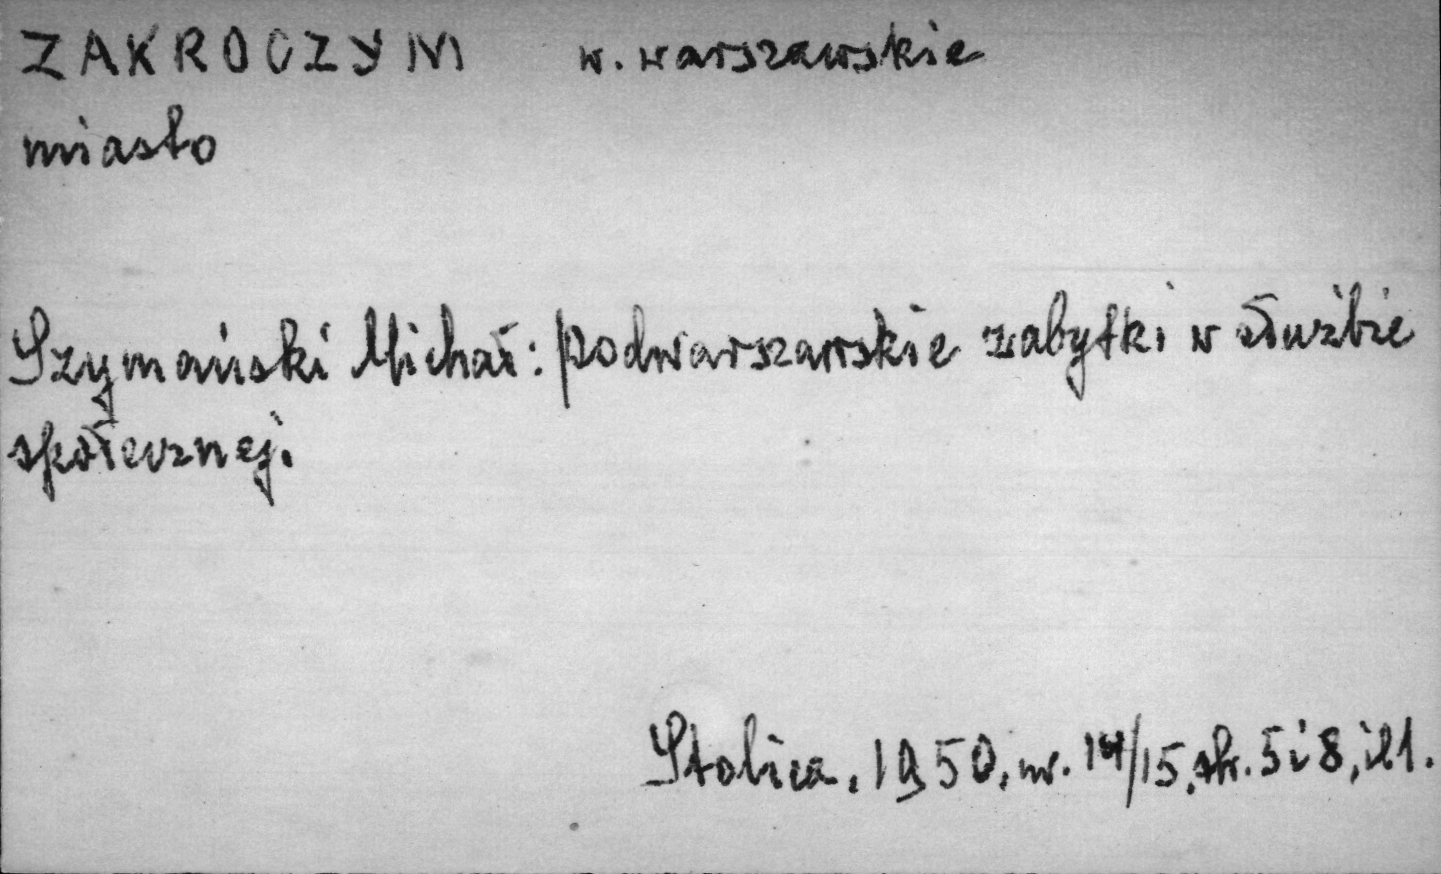 ZAKROCZYM w. warszawskie
miasto
Szymański Michał: podwarszawskie zabytki w służbie
społecznej.
Stolica, 1950, nr. 14/15, str. 5 i 8, ill.